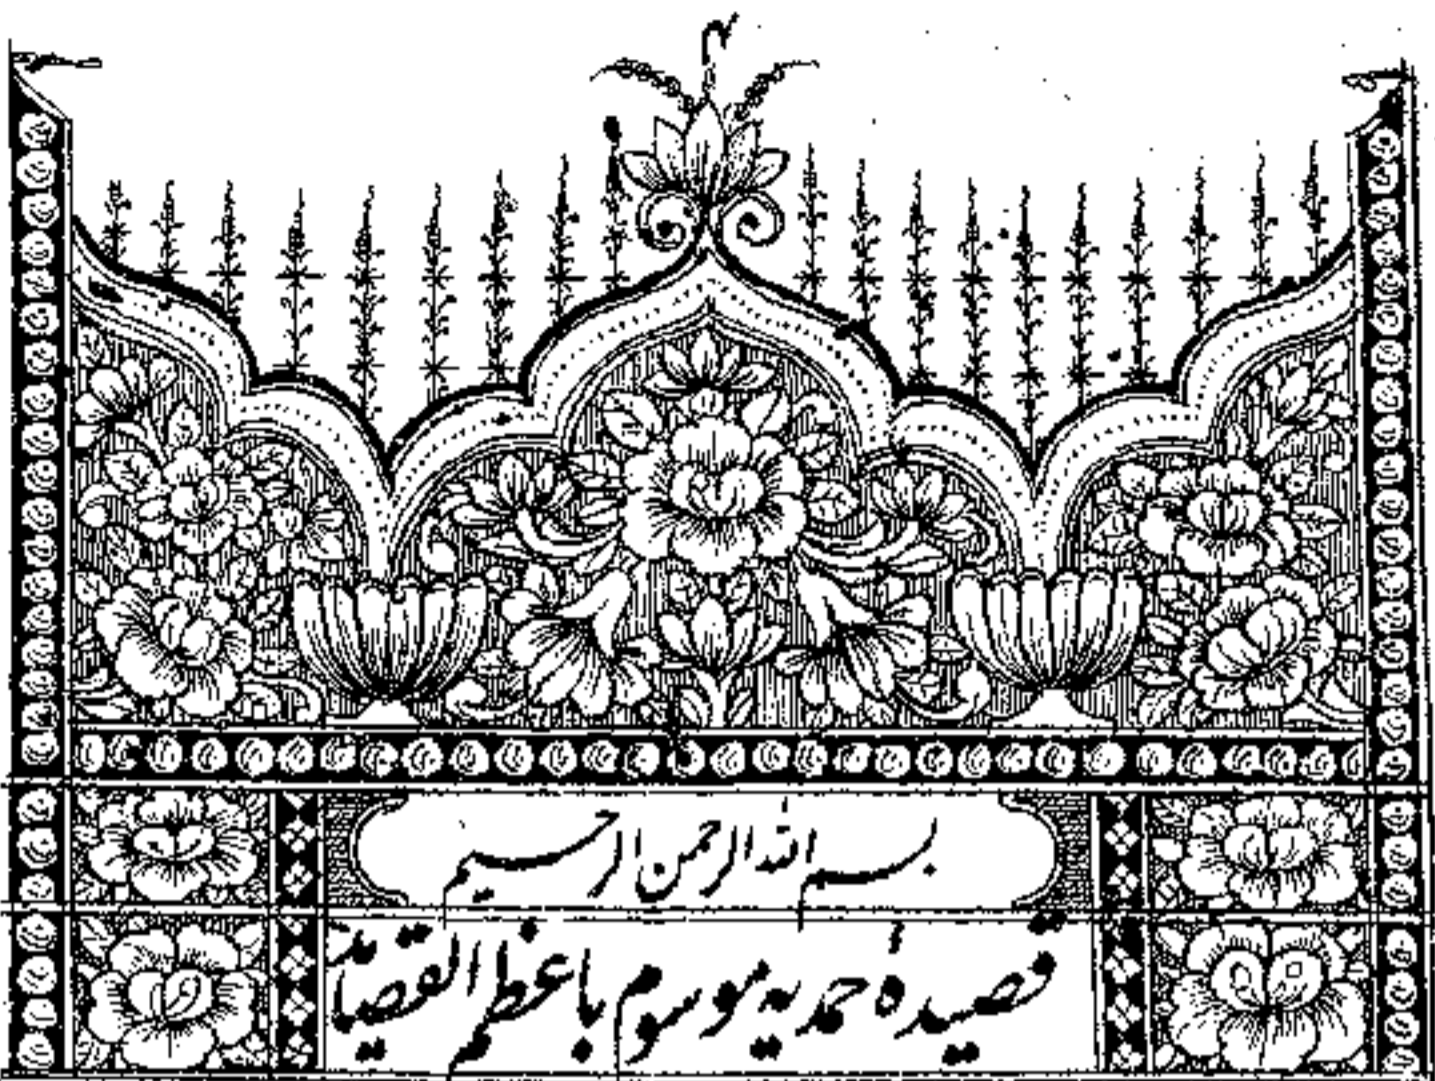 بسم الله الرحمن الرحیم
قصیدۀ حمدیه موسوم باعظم القصائد